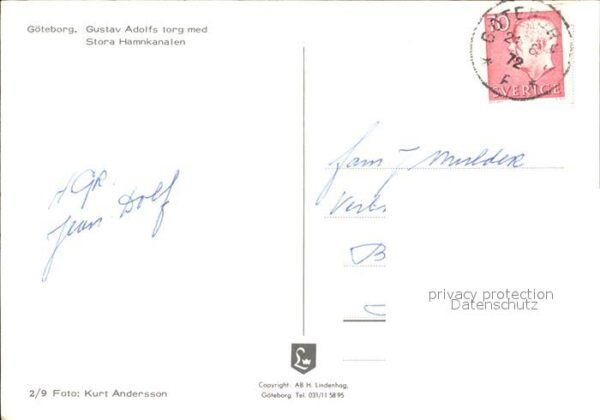 Göteborg. Gustav Adolfs torg med
Stora Hamnkanalen
GÖTEBORG
72
F
SVERIGE
H Gr.
Jean Dolf
fam J Mulder
B
privacy protection
Datenschutz
L
Copyright: AB H. Lindenhag,
Göteborg. Tel. 031/11 58 95
2/9 Foto: Kurt Andersson